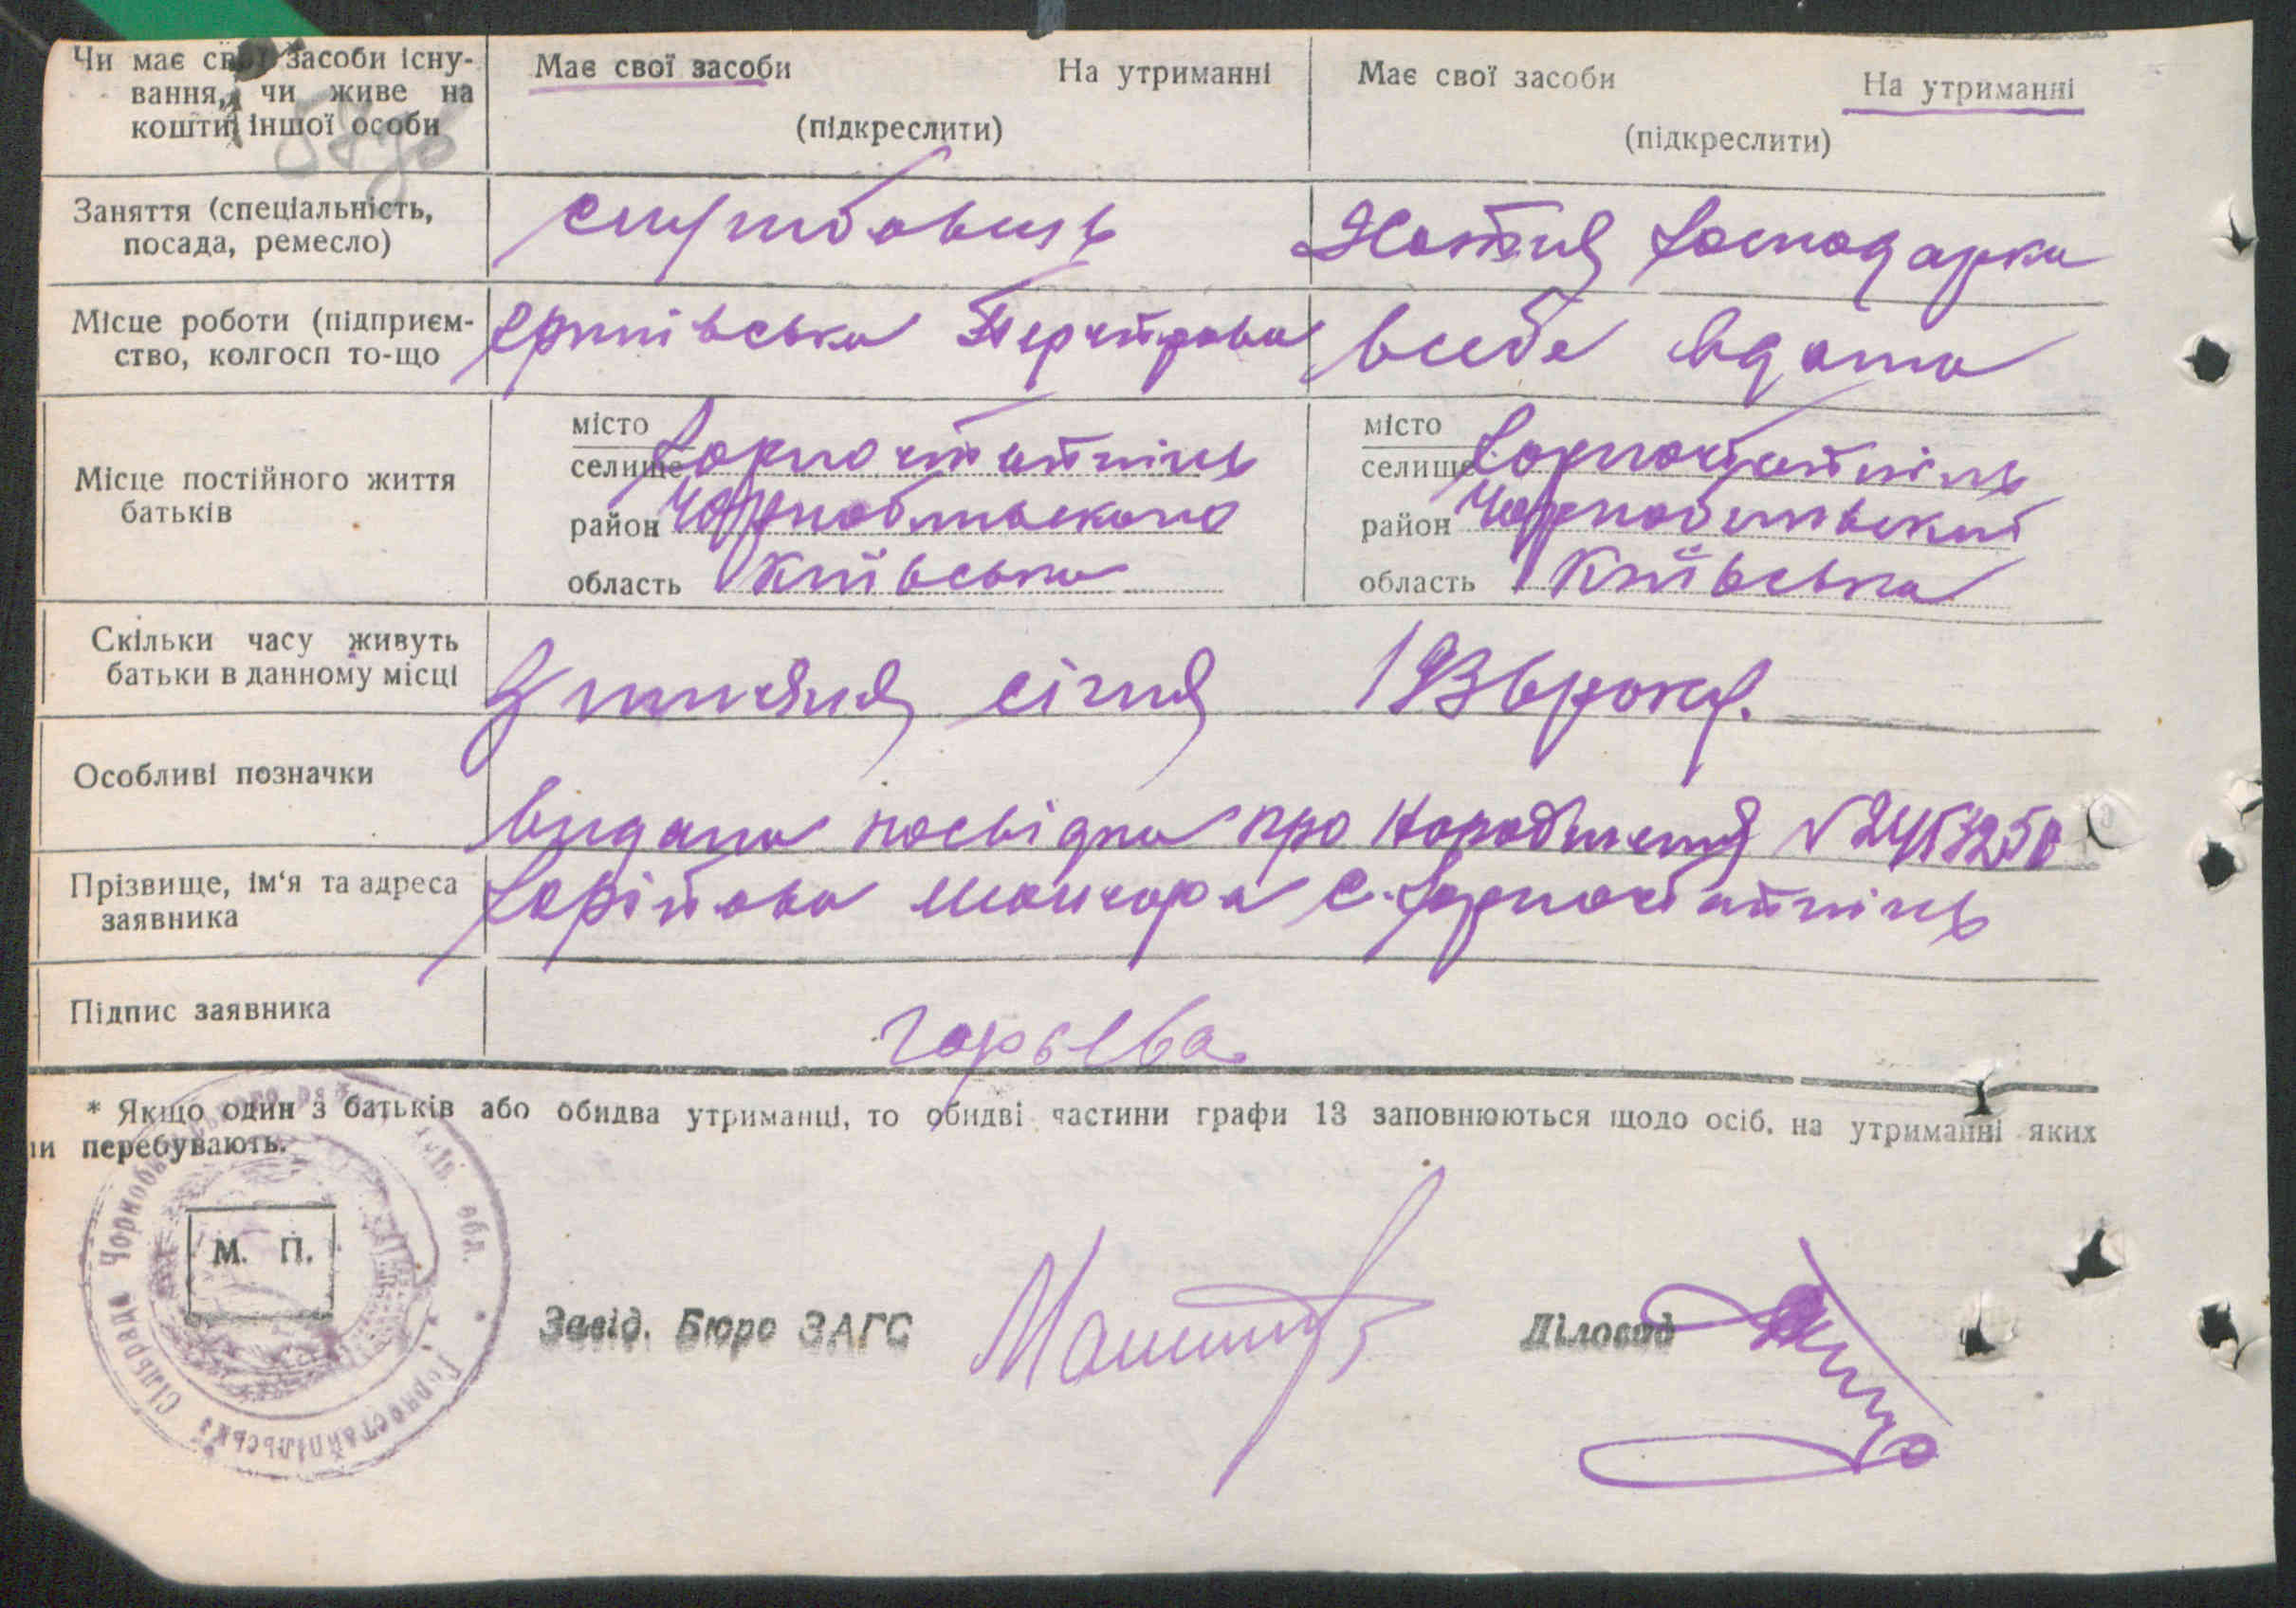 Чи має свої засоби існу-
вання, чи живе на
кошти іншої особи
Має свої засоби На утриманні
(підкреслити)
Має свої засоби На утриманні
(підкреслити)
Заняття (спеціальність,
посада, ремесло)
службовець
Хатня господарка
Місце роботи (підприєм-
ство, колгосп то-що
все́бе вдома
Місце постійного життя
батьків
місто
селище Горностайпіль
район Чорнобильського
область Київська
місто
селище Горностайпіль
район Чорнобильский
область Київська
Скільки часу живуть
батьки в данному місці
січня 1936 року.
Особливі позначки
видана посвідка про народження №
Прізвище, ім'я та адреса
заявника
с. Горностайпіль
Підпис заявника
* Якщо один з батьків або обидва утриманці, то обидві частини графи 13 заповнюються щодо осіб, на утриманні яких
ни перебувають.
М. П.
Горностайпільська Сільрада Чорнобильського обл.
Завід. Бюро ЗАГС
Діловод